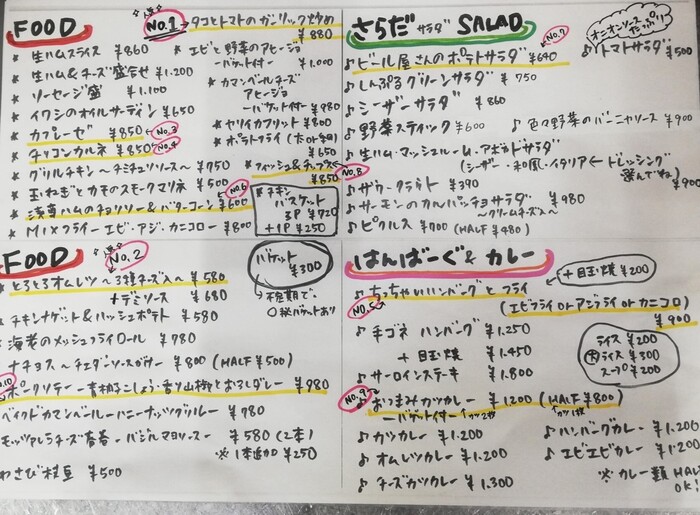 FOOD
人気
No.1
タコとトマトのガーリック炒め
¥880
★ 生ハムスライス ¥860
★ 生ハム&チーズ盛合せ ¥1.200
★ ソーセージ盛 ¥1.100
★ イワシのオイルサーディン ¥650
★ カプレーゼ ¥850 No.3
★ チリコンカルネ ¥850 No.4
★ グリルチキン〜チミチュリソース〜 ¥750
★ 玉ねぎとカモのスモークマリネ ¥500
★ 浅草ハムのチョリソー&バターコーン ¥600
No.6
★ MIXフライーエビ・アジ・カニコロー ¥800
★ エビと野菜のアヒージョ
ーバゲット付ー ¥1.000
★ カマンベールチーズ
アヒージョ
ーバゲット付ー ¥980
★ ヤリイカフリット ¥800
★ ポテトフライ
¥650
★ フィッシュ&チップス
¥850
★ チキン
バスケット
3P ¥720
+1P ¥250
さらだ サラダ SALAD
オニオンソース
たっぷり
♪ ビール屋さんのポテトサラダ ¥640
No.7
♪ トマトサラダ ¥500
♪ しんぷるグリーンサラダ ¥750
♪ シーザーサラダ ¥860
♪ 野菜スティック ¥600
♪ 色々野菜のバーニャソース ¥900
♪ 生ハム・マッシュルーム・アボカドサラダ
(シーザー・和風・イタリア ← ドレッシング
選んでね)
¥900
No.8
♪ ザワークラウト ¥390
♪ サーモンのカルパッチョサラダ ¥980
〜クリームチーズ入〜
♪ ピクルス ¥700 (HALF ¥480)
FOOD
人気
No.2
バゲット
¥300
とろとろオムレツ〜3種チーズ入〜 ¥580
+デミソース ¥680
チキンナゲット&ハッシュポテト ¥580
海老のメッシュフライロール ¥780
ナチョス〜チェダーソースがけー ¥800 (HALF ¥500)
No.10
ポークソテー
¥980
ベイクドカマンベールーハニーナッツグリルー ¥780
モッツァレラチーズ春巻ーバジルマヨソースー ¥580 (2本)
※1本追加 ¥250
わさび枝豆 ¥500
はんばーぐ&カレー
+目玉焼 ¥200
♪ ちっちゃいハンバーグとフライ
(エビフライ or アジフライ or カニコロ)
¥900
No.5
♪ 手ゴネハンバーグ ¥1.250
+目玉焼 ¥1.450
♪ サーロインステーキ ¥1.800
ライス ¥200
大ライス ¥300
スープ ¥200
No.9
♪ おつまみカツカレー ¥1200 (HALF ¥800)
ーバゲット付ー カツ2枚 カツ1枚
♪ カツカレー ¥1.200
♪ オムレツカレー ¥1.200
♪ チーズカツカレー ¥1.300
♪ ハンバーグカレー ¥1.200
♪ エビエビカレー ¥1.200
※カレー類 HALF
OK!